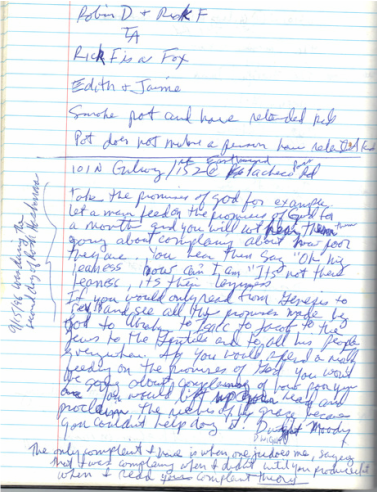 Robin D + Rick F
TA
Rick F is a Fox
Edith + Jaime
Smoke pot and have retarded kids
Pot does not make a person have retarded kids
101 N
Take the promises of god for example
let a man feed on the promises of God for
a month and you will not hear them
going about complaing about how poor
they are. You hear them say "Oh my
leaness how can I am" It's not their
leaness, its their
If you would only read from Genesis to
Rev and see all the promises made by
God to to Isaac to Jacob to the
Jews to the Gentiles and to all his people
everywhere. If you would spend a month
feeding on the promises of God you would
be going about complaining of how poor you
are you would lift up your head and
proclaim the riches of his grace because
you couldnt help doing it. Dwight Moody
Dwight
The only complaint I have is when one judges me, saying
that I was complaing when I didnt until you
when I read your complaint theory
9/15/06
second day of Rosh Hashanah